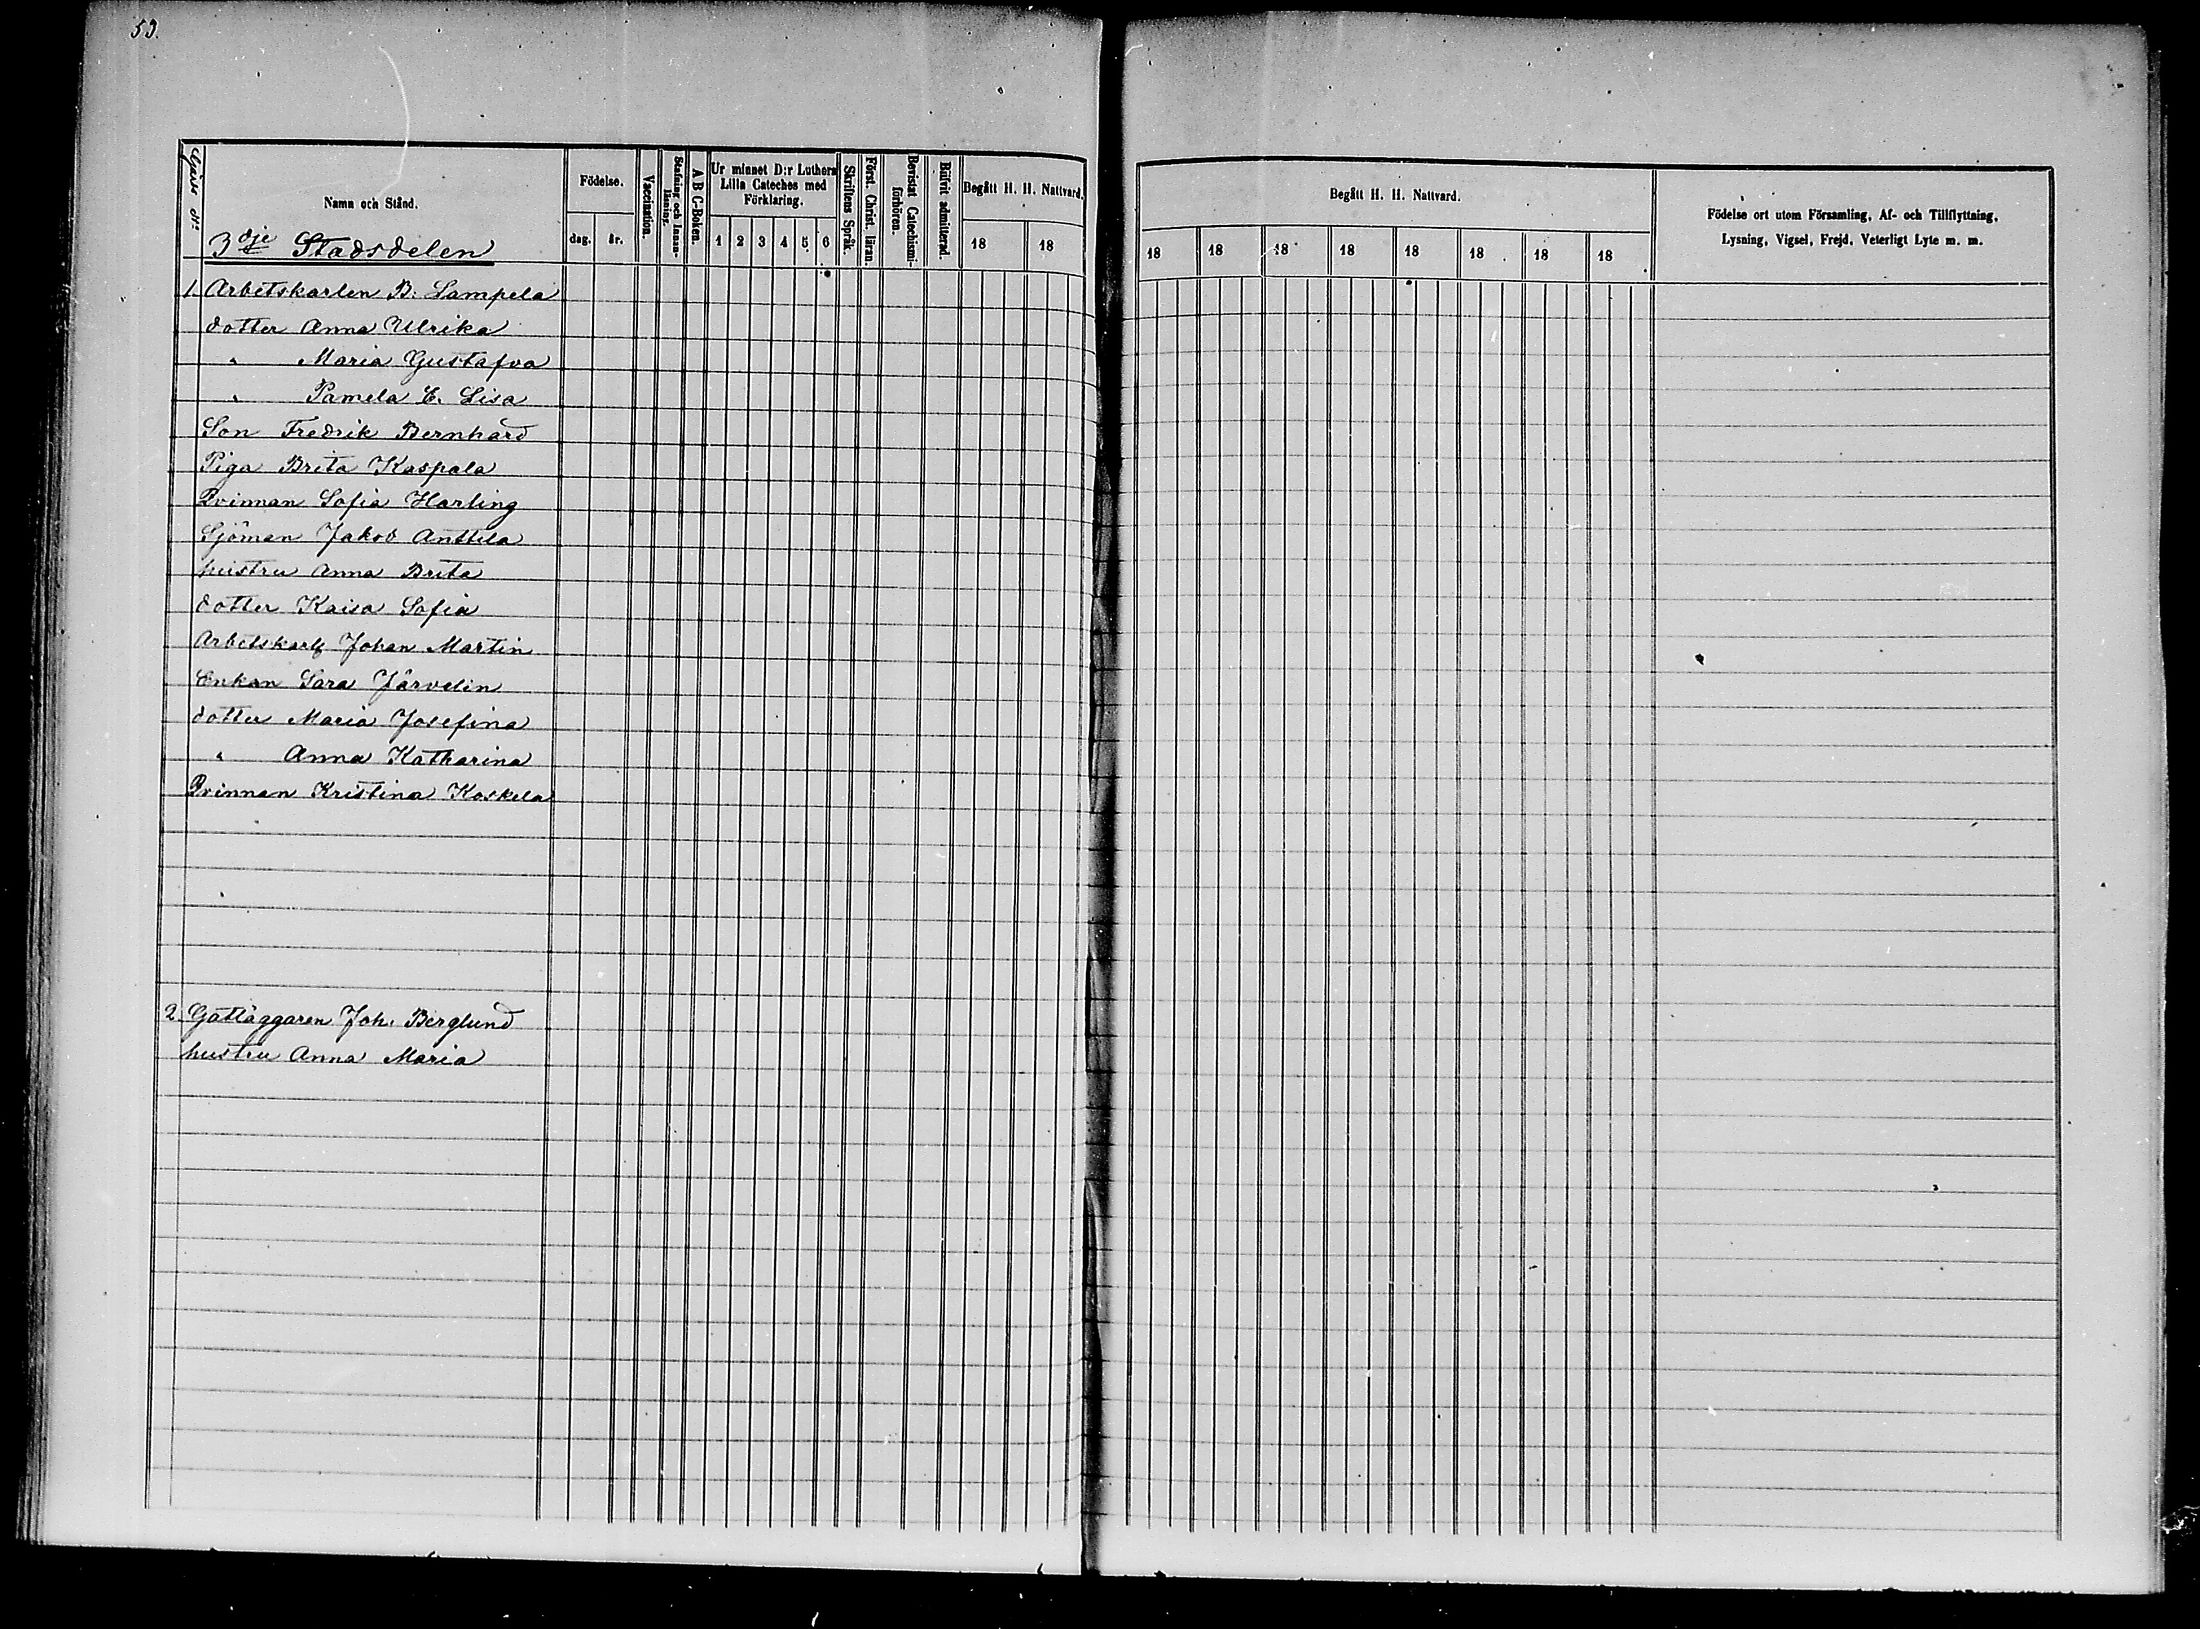 53.
Gårds No
Namn och Stånd.
Födelse.
dag. år.
Vaccination.
Stafning och Innan-
läsning.
A B C-Boken.
Ur minnet D:r Luthers
Lilla Cateches med
Förklaring.
1 2 3 4 5 6
Skriftens Språk.
Först. Christ. läran.
Bevistat Catechismi-
förhören.
Blifvit admitterad.
Begått H. H. Nattvard.
18 18
Begått H. H. Nattvard.
18 18 18 18 18 18 18 18
Födelse ort utom Församling, Af- och Tillflyttning,
Lysning, Vigsel, Frejd, Veterligt Lyte m. m.
3dje Stadsdelen
1. Arbetskarlen B. Lampela
dotter Anna Ulrika
" Maria Gustafva
" Pamela E. Lisa
Son Fredrik Bernhard
Piga Brita Kaspala
Qvinnan Sofia Harling
Sjöman Jakob Anttila
hustru Anna Brita
dotter Kaisa Sofia
Arbetskarlen Johan Martin
Enkan Sara Järvelin
dotter Maria Josefina
" Anna Katharina
Qvinnan Kristina Koskela
2. Gatläggaren Joh. Berglund
hustru Anna Maria